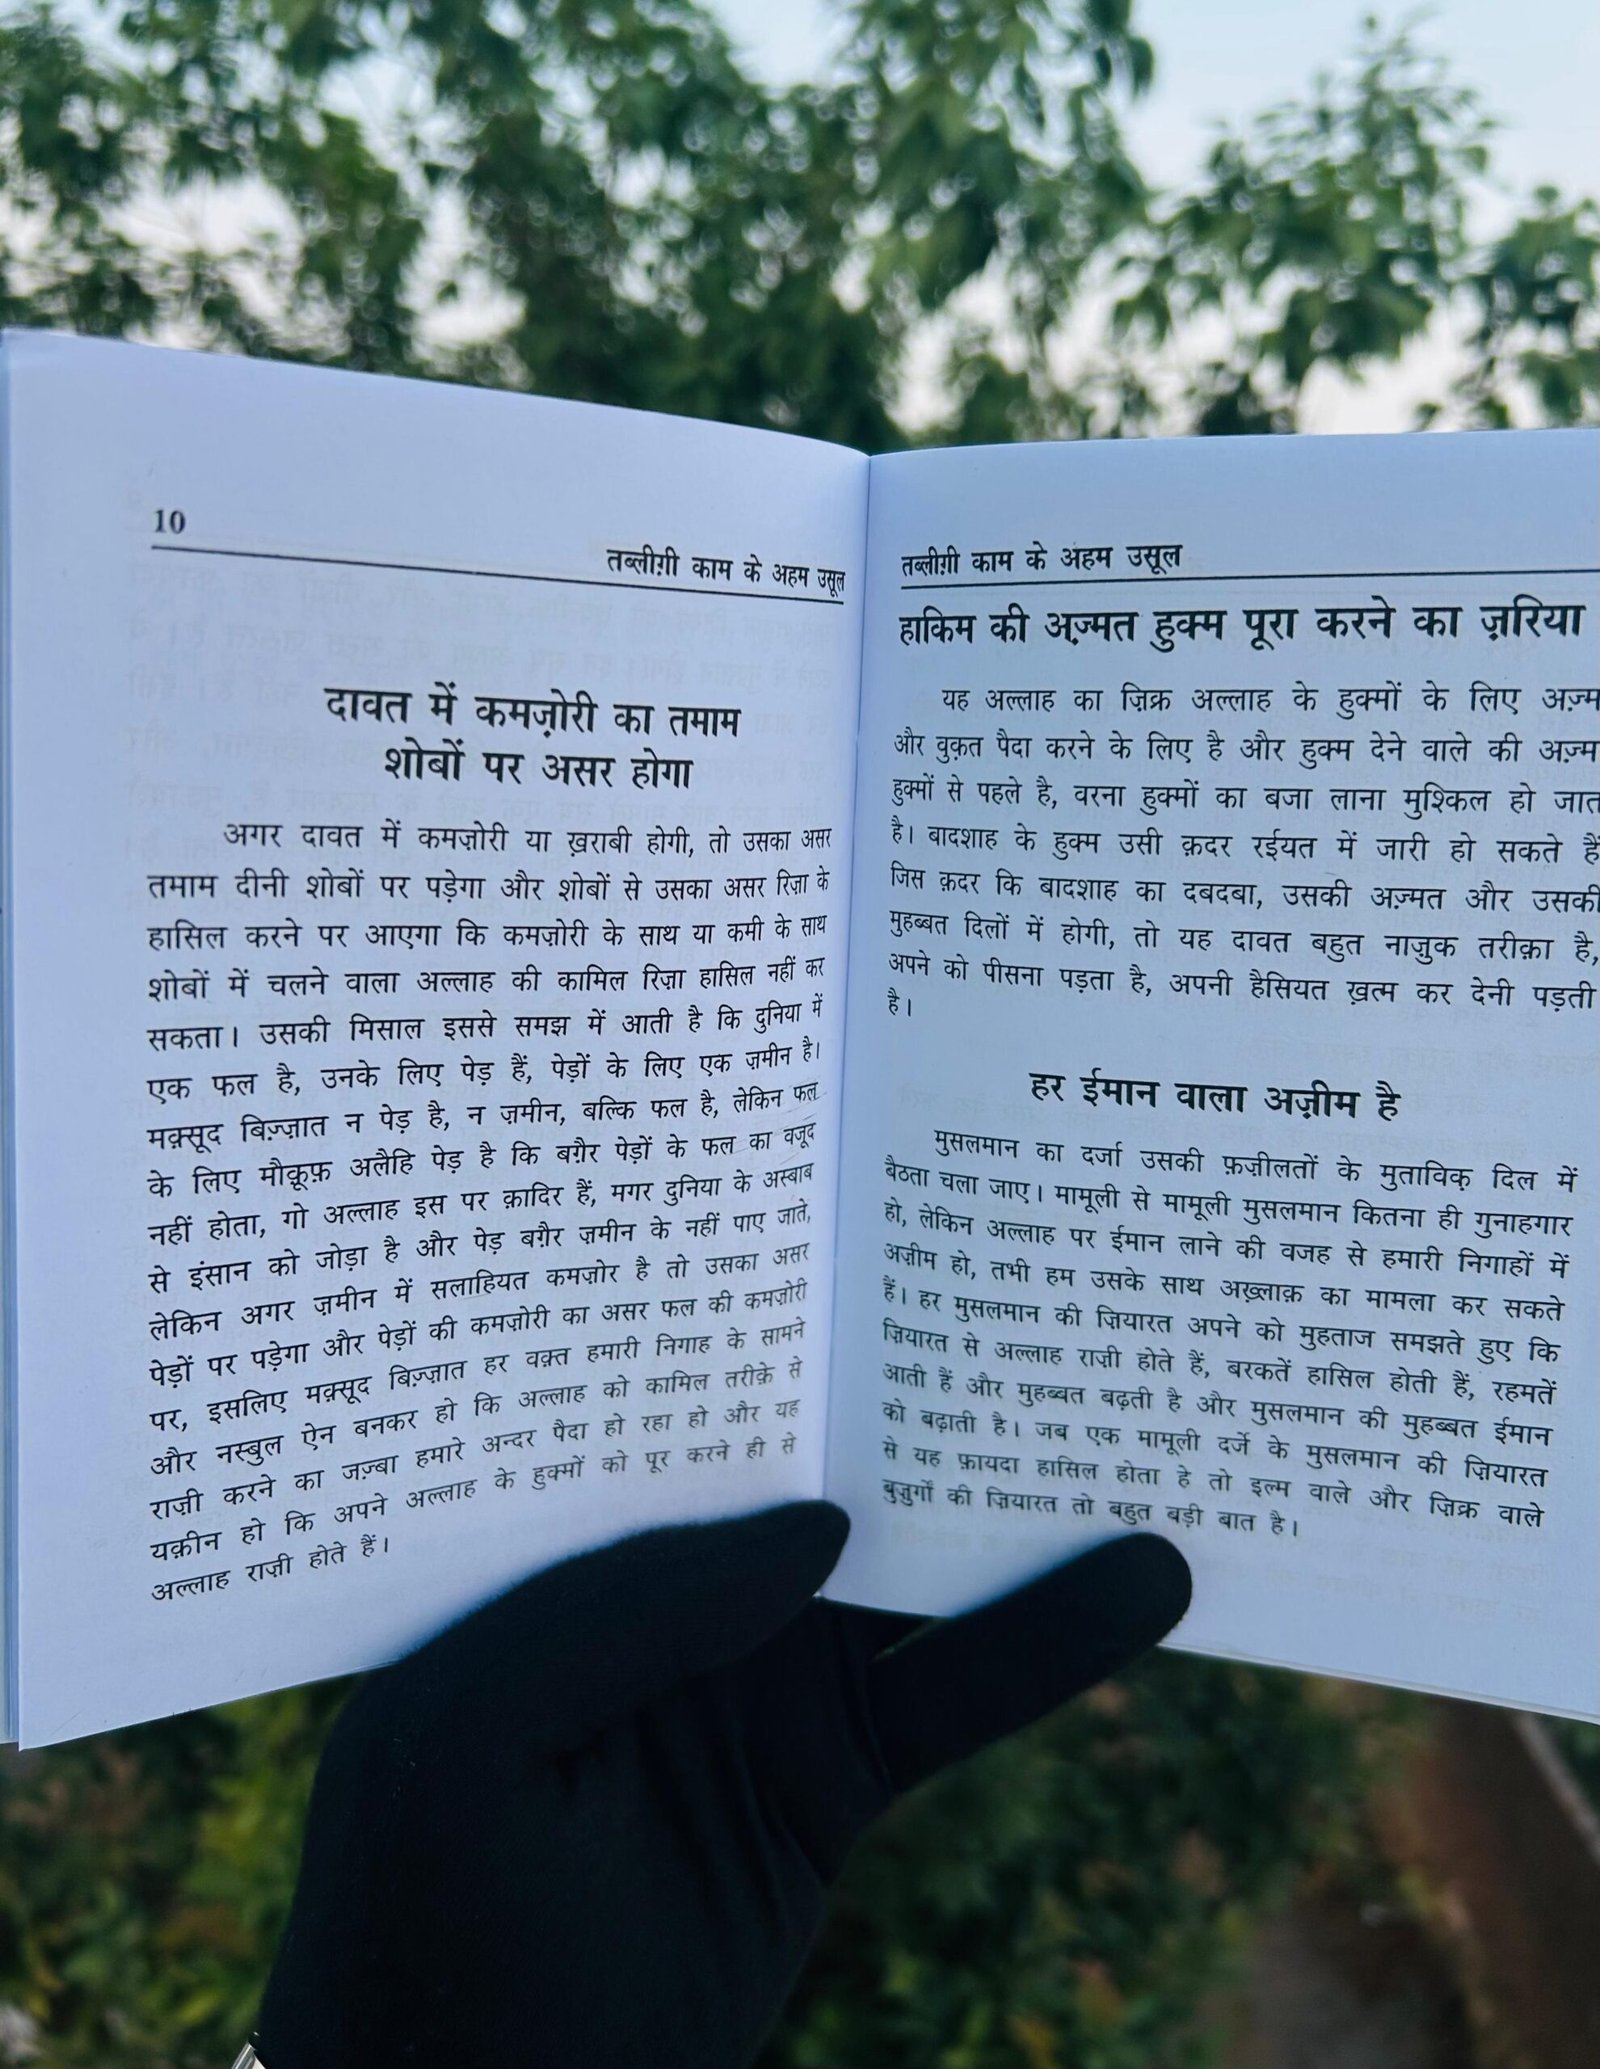 10
तब्लीग़ी काम के अहम उसूल
दावत में कमज़ोरी का तमाम
शोबों पर असर होगा
अगर दावत में कमज़ोरी या ख़राबी होगी, तो उसका असर
तमाम दीनी शोबों पर पड़ेगा और शोबों से उसका असर रिज़ा के
हासिल करने पर आएगा कि कमज़ोरी के साथ या कमी के साथ
शोबों में चलने वाला अल्लाह की कामिल रिज़ा हासिल नहीं कर
सकता। उसकी मिसाल इससे समझ में आती है कि दुनिया में
एक फल है, उनके लिए पेड़ हैं, पेड़ों के लिए एक ज़मीन है।
मक़्सूद बिज़्ज़ात न पेड़ है, न ज़मीन, बल्कि फल है, लेकिन फल
के लिए मौक़ूफ़ अलैहि पेड़ है कि बग़ैर पेड़ों के फल का वजूद
नहीं होता, गो अल्लाह इस पर क़ादिर हैं, मगर दुनिया के अस्बाब
से इंसान को जोड़ा है और पेड़ बग़ैर ज़मीन के नहीं पाए जाते,
लेकिन अगर ज़मीन में सलाहियत कमज़ोर है तो उसका असर
पेड़ों पर पड़ेगा और पेड़ों की कमज़ोरी का असर फल की कमज़ोरी
पर, इसलिए मक़्सूद बिज़्ज़ात हर वक़्त हमारी निगाह के सामने
और नस्बुल ऐन बनकर हो कि अल्लाह को कामिल तरीक़े से
राज़ी करने का जज़्बा हमारे अन्दर पैदा हो रहा हो और यह
यक़ीन हो कि अपने अल्लाह के हुक्मों को पूर करने ही से
अल्लाह राज़ी होते हैं।
तब्लीग़ी काम के अहम उसूल
हाकिम की अज़्मत हुक्म पूरा करने का ज़रिया
यह अल्लाह का ज़िक्र अल्लाह के हुक्मों के लिए
और वुक़त पैदा करने के लिए है और हुक्म देने वाले की
हुक्मों से पहले है, वरना हुक्मों का बजा लाना मुश्किल हो
है। बादशाह के हुक्म उसी क़दर रईयत में जारी हो सकते हैं
जिस क़दर कि बादशाह का दबदबा, उसकी अज़्मत और उसकी
मुहब्बत दिलों में होगी, तो यह दावत बहुत नाज़ुक तरीक़ा है,
अपने को पीसना पड़ता है, अपनी हैसियत ख़त्म कर देनी पड़ती
है।
हर ईमान वाला अज़ीम है
मुसलमान का दर्जा उसकी फ़ज़ीलतों के मुताविक़ दिल में
बैठता चला जाए। मामूली से मामूली मुसलमान कितना ही गुनाहगार
हो, लेकिन अल्लाह पर ईमान लाने की वजह से हमारी निगाहों में
अज़ीम हो, तभी हम उसके साथ अख़्लाक़ का मामला कर सकते
हैं। हर मुसलमान की ज़ियारत अपने को मुहताज समझते हुए कि
ज़ियारत से अल्लाह राज़ी होते हैं, बरकतें हासिल होती हैं, रहमतें
आती हैं और मुहब्बत बढ़ती है और मुसलमान की मुहब्बत ईमान
को बढ़ाती है। जब एक मामूली दर्जे के मुसलमान की ज़ियारत
से यह फ़ायदा हासिल होता हे तो इल्म वाले और ज़िक्र वाले
बुज़ुर्गों की ज़ियारत तो बहुत बड़ी बात है।